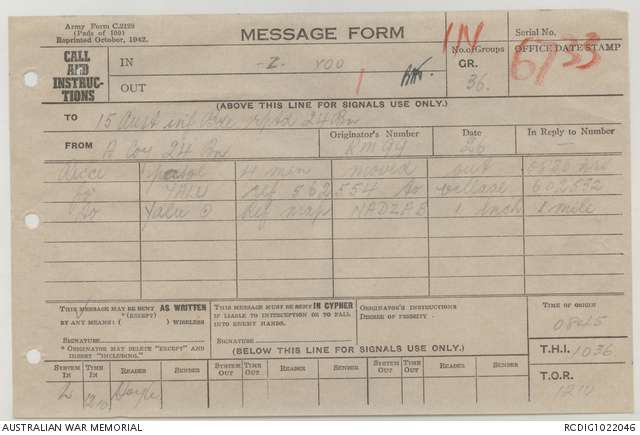 Army Form C.2129
(Pads of 100)
Reprinted October, 1942.
MESSAGE FORM
IN
Serial No.
6/33
CALL AND INSTRUCTIONS
IN
-Z- YOO
OUT
1
No. of Groups
GR.
36.
OFFICE DATE STAMP
(ABOVE THIS LINE FOR SIGNALS USE ONLY.)
TO
15 Aust Inf Bde rptd 24 Bn
FROM
A Coy 24 Bn
Originator's Number
Date
26
In Reply to Number
Recce patrol 4 men moved out hrs
YALU ref 562 554 to village 602552
to Yalu Ref map NADZAB 1 inch 1 mile
THIS MESSAGE MAY BE SENT AS WRITTEN
*(EXCEPT)
BY ANY MEANS: ( ) WIRELESS
SIGNATURE
* ORIGINATOR MAY DELETE "EXCEPT" AND INSERT "INCLUDING."
THIS MESSAGE MUST BE SENT IN CYPHER
IF LIABLE TO INTERCEPTION OR TO FALL INTO ENEMY HANDS.
SIGNATURE
ORIGINATOR'S INSTRUCTIONS
DEGREE OF PRIORITY
TIME OF ORIGIN
0845
T.H.I. 1036
T.O.R.
1210
(BELOW THIS LINE FOR SIGNALS USE ONLY.)
SYSTEM IN
TIME IN
READER
SENDER
SYSTEM OUT
TIME OUT
READER
SENDER
SYSTEM OUT
TIME OUT
READER
SENDER
L 1210
AUSTRALIAN WAR MEMORIAL
RCDIG1022046